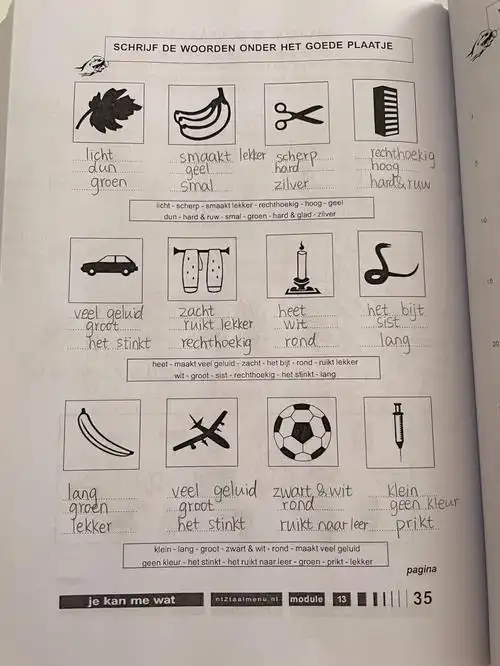 SCHRIJF DE WOORDEN ONDER HET GOEDE PLAATJE
licht smaakt lekker scherp rechthoekig
dun geel hard hoog
groen smal zilver hard & ruw
licht - scherp - smaakt lekker - rechthoekig - hoog - geel
dun - hard & ruw - smal - groen - hard & glad - zilver
veel geluid zacht heet het bijt
groot ruikt lekker wit sist
het stinkt rechthoekig rond lang
heet - maakt veel geluid - zacht - het bijt - rond - ruikt lekker
wit - groot - sist - rechthoekig - het stinkt - lang
lang veel geluid zwart & wit klein
groen groot rond geen kleur
lekker het stinkt ruikt naar leer prikt
klein - lang - groot - zwart & wit - rond - maakt veel geluid
geen kleur - het stinkt - het ruikt naar leer - groen - prikt - lekker
pagina
je kan me wat nt2taalmenu.nl module 13 35